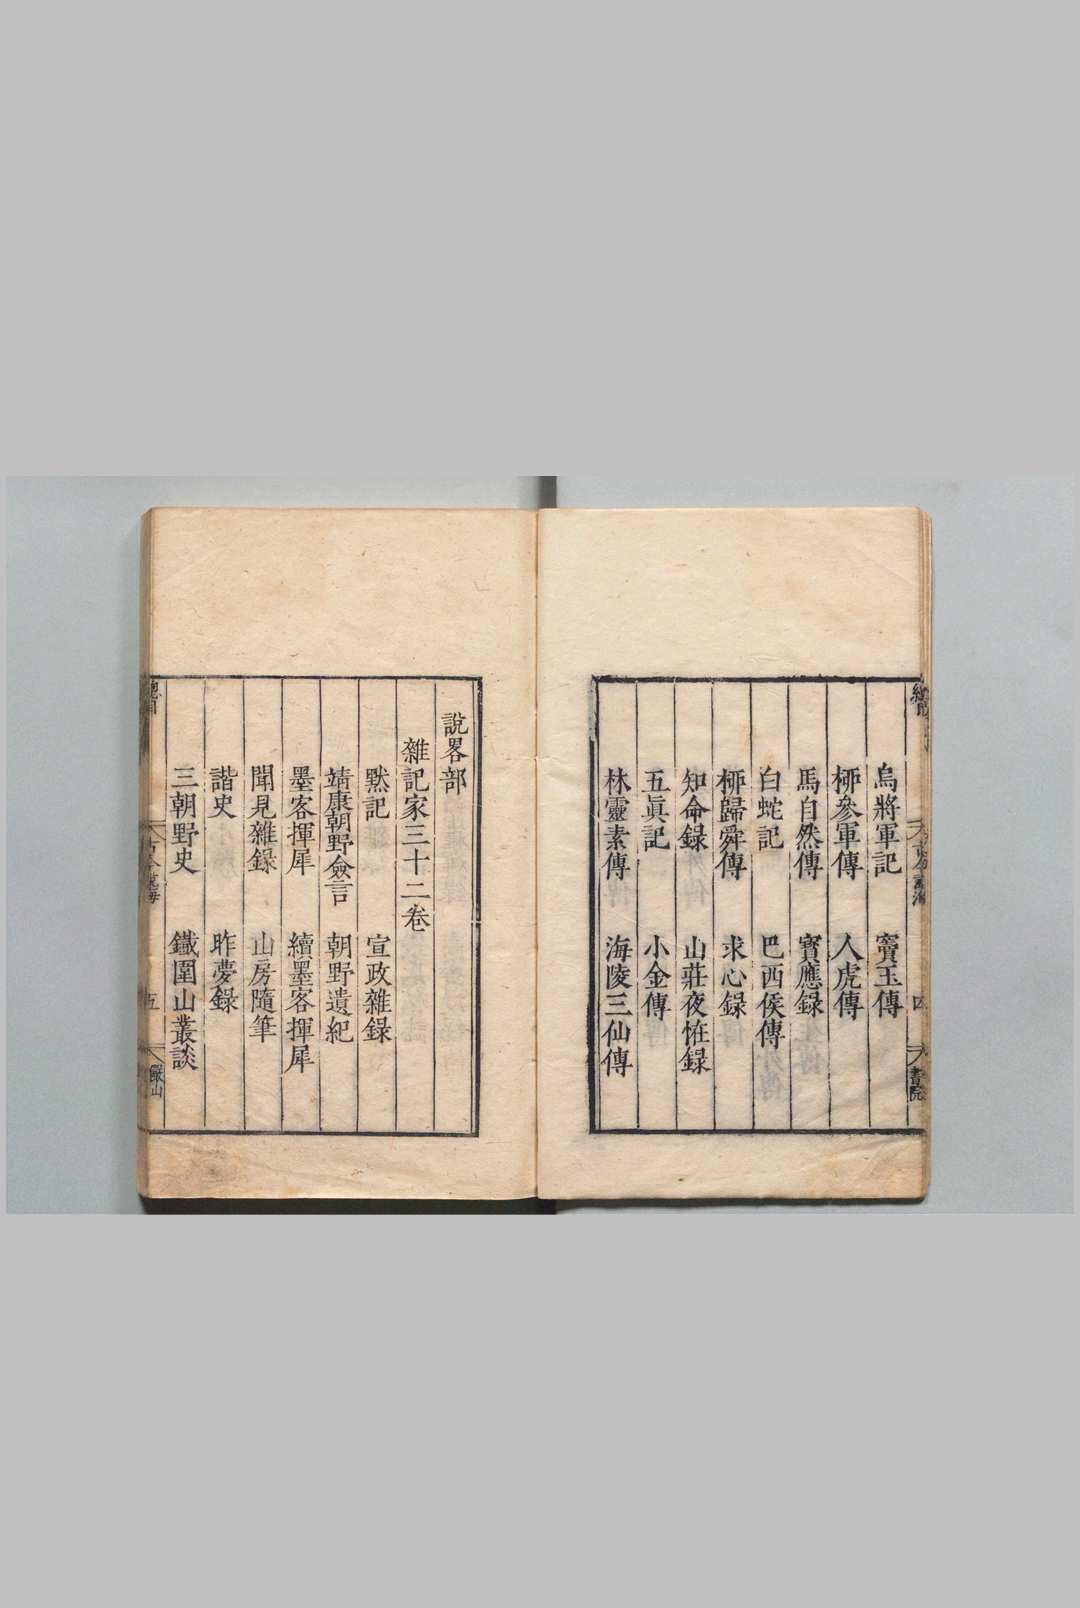 烏將軍記　竇玉傳
栁參軍傳　人虎傳
馬自然傳　寳應録
白蛇記　巴西侯傳
栁歸舜傳　求心録
知命録　山莊夜恠録
五眞記　小金傳
林靈素傳　海陵三仙傳
說畧部
雜記家三十二卷
默記　宣政雜録
靖康朝野僉言　朝野遺紀
墨客揮犀　續墨客揮犀
聞見雜録　山房隨筆
諧史　昨夢録
三朝野史　鐵圍山叢談